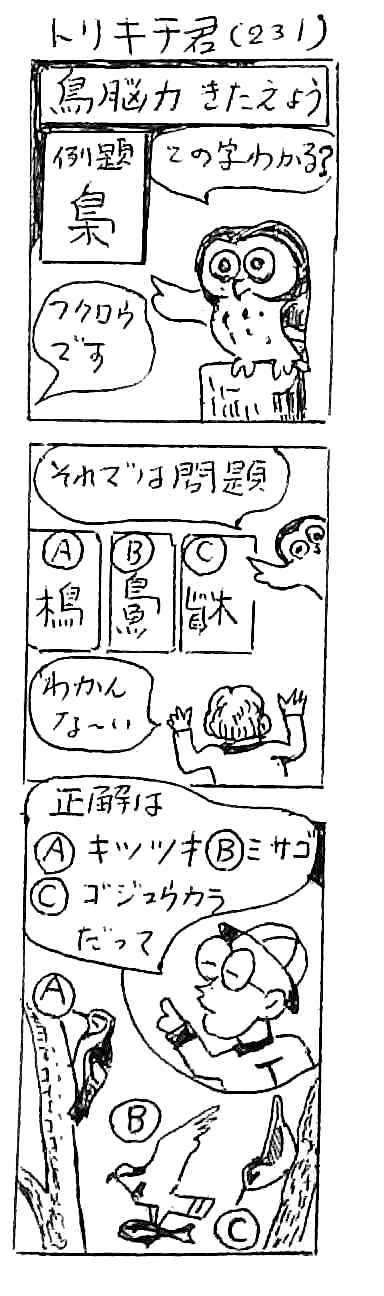 トリキチ君(231)
鳥脳力きたえよう
例題
梟
この字わかる?
フクロウ
です
それでは問題
A B C
わかん
な〜い
正解は
A キツツキ B ミサゴ
C ゴジュウカラ
だって
A
B
C